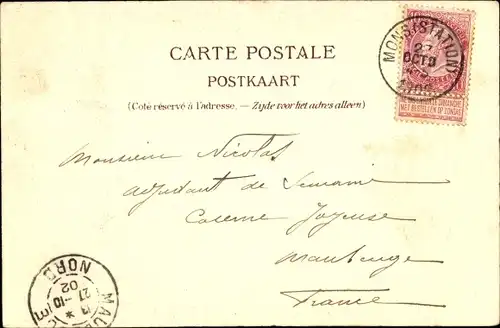 CARTE POSTALE
POSTKAART
(Côté réservé à l'adresse. — Zijde voor het adres alleen)
MONS (STATION)
27
OCTO
1902
NE PAS LIVRER LE DIMANCHE
NIET BESTELLEN OP ZONDAG
Monsieur Nicolas
adjudant de Semaine
Caserne Joyeuse
Maubeuge
France
NORD
27-10
02